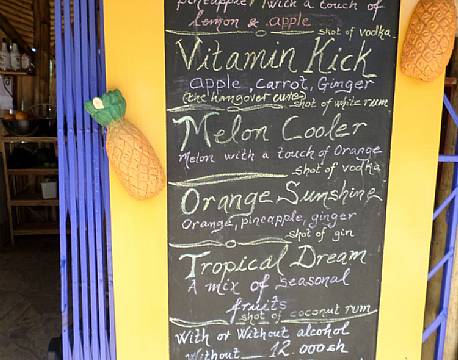 pineapple, with a touch of
lemon & apple
shot of vodka
Vitamin Kick
apple, carrot, Ginger
(the hangover cure)
shot of white rum
Melon Cooler
Melon with a touch of Orange
shot of vodka
Orange Sunshine
Orange, pineapple, ginger
shot of gin
Tropical Dream
A mix of seasonal
fruits
shot of coconut rum
With or Without alcohol
Without 12.000sh